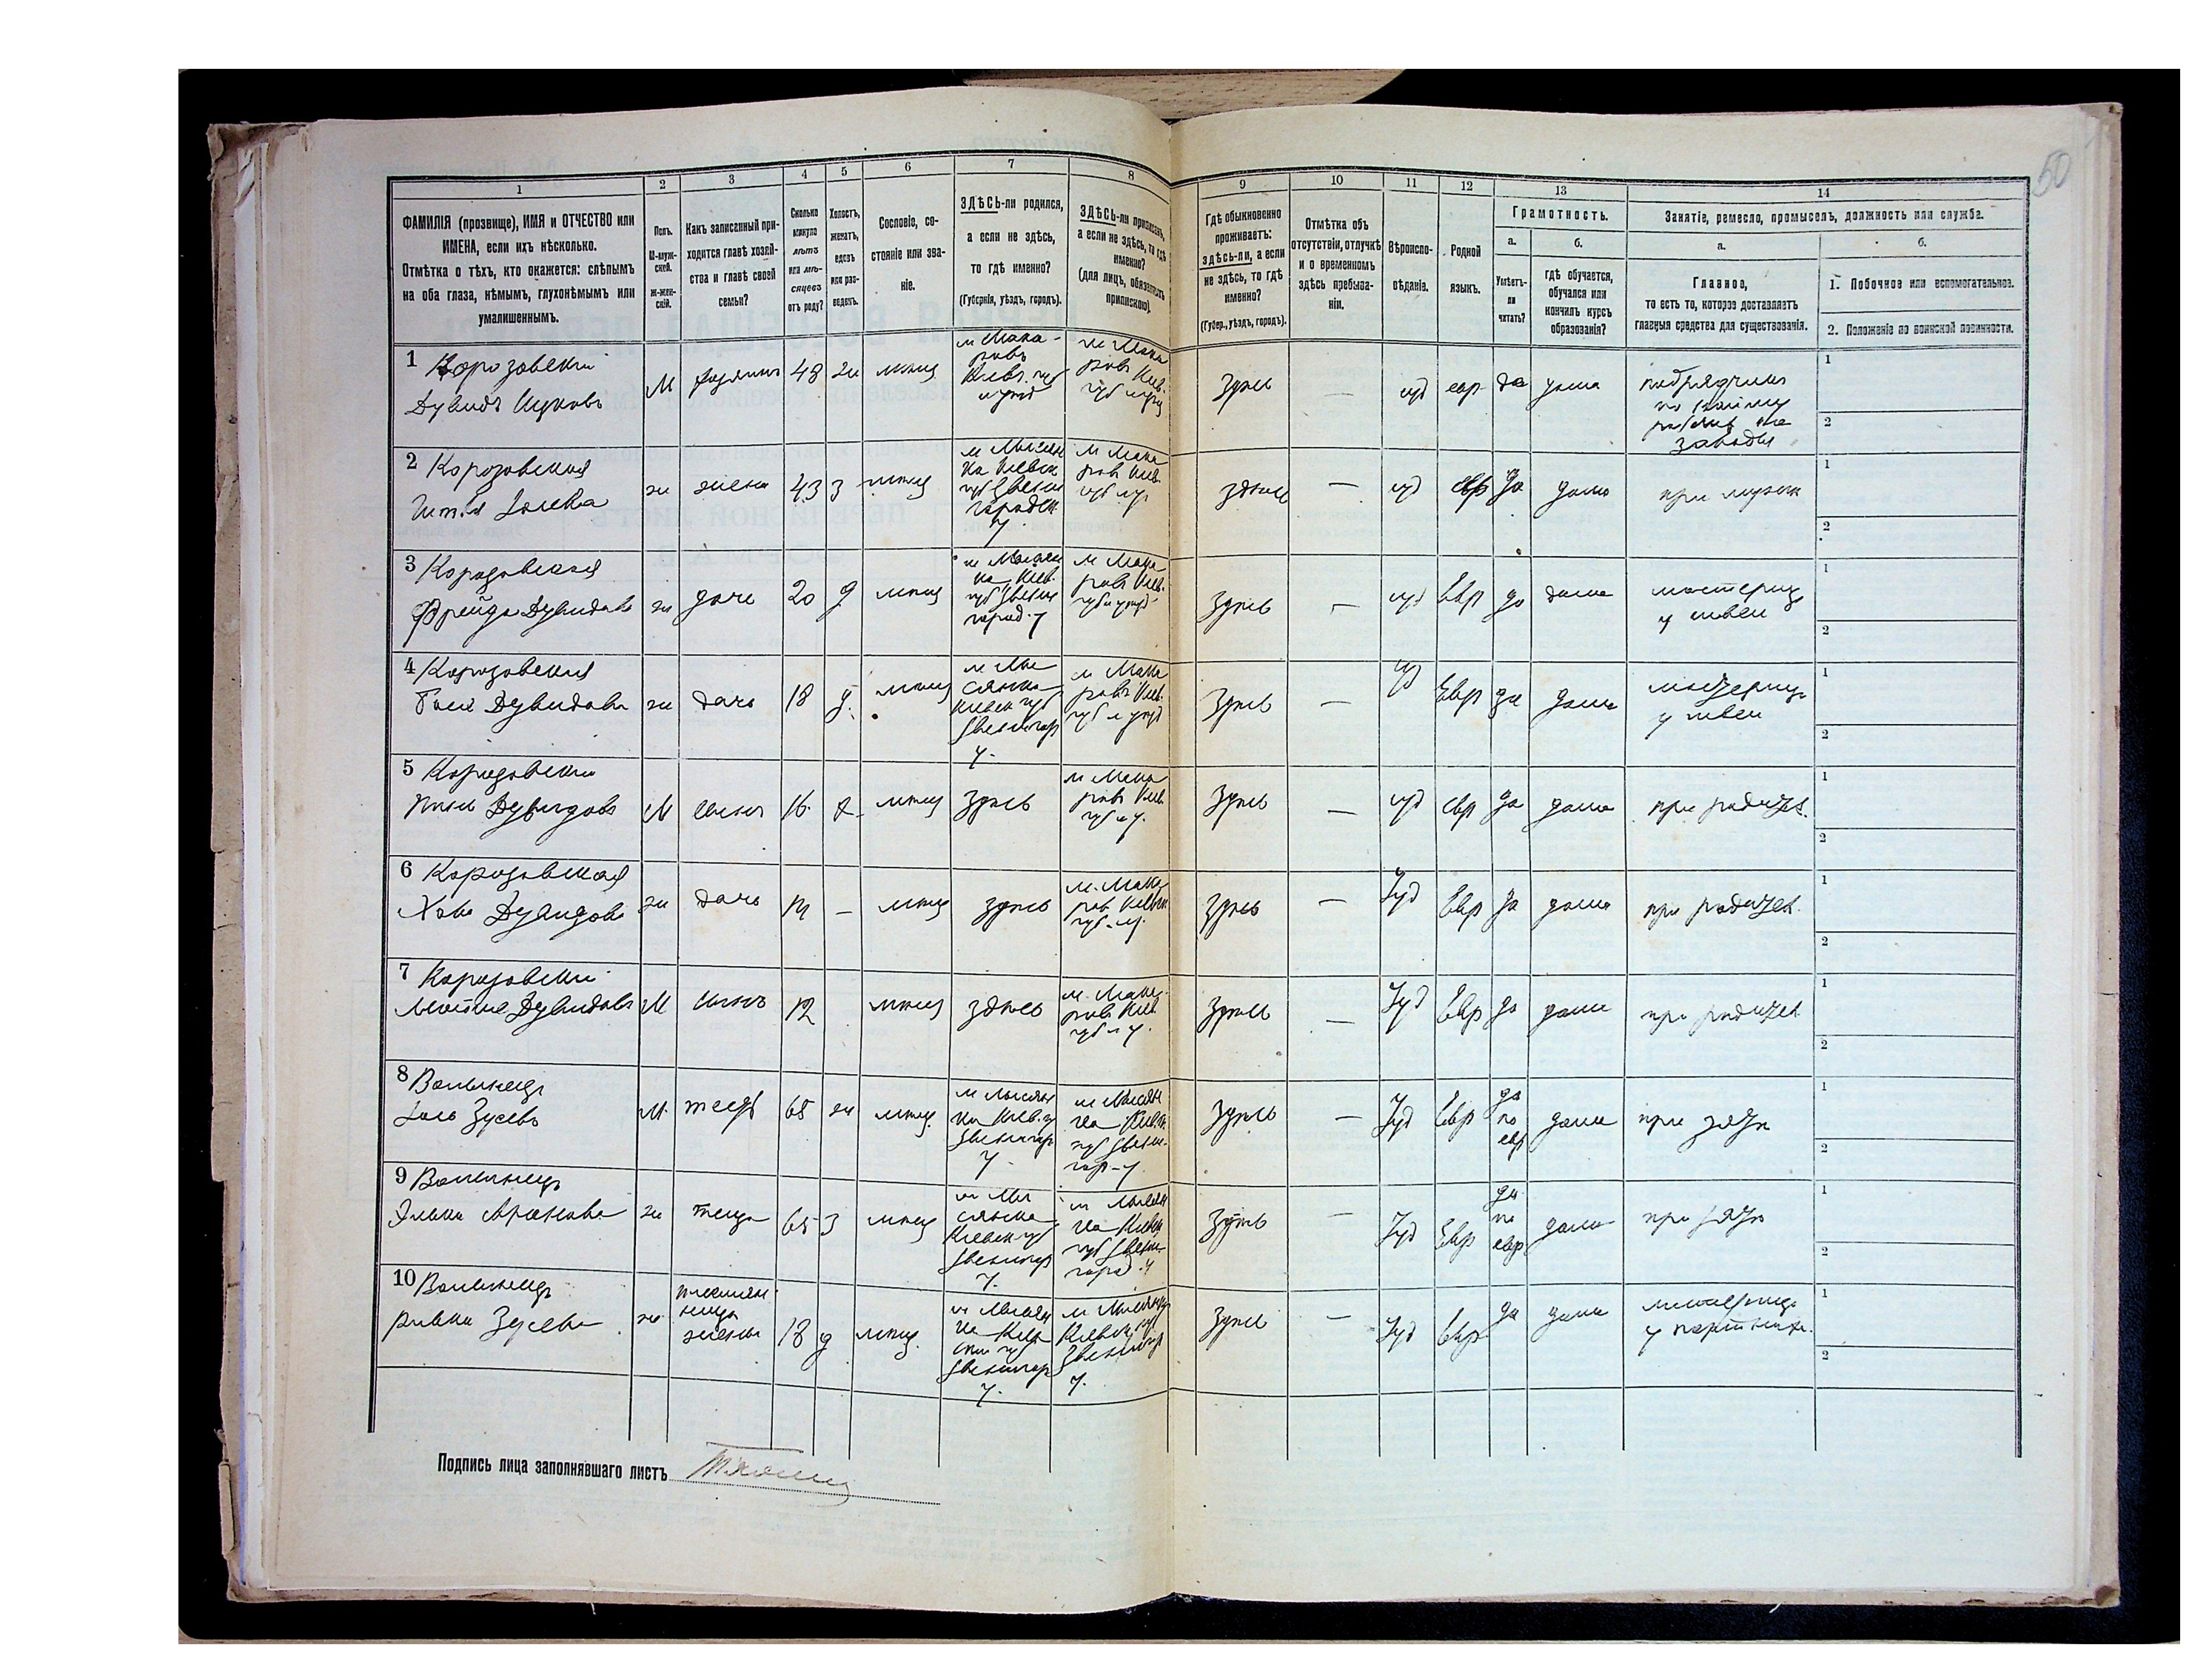 50
1 2 3 4 5 6 7 8 9 10 11 12 13 14
ФАМИЛІЯ (прозвище), ИМЯ и ОТЧЕСТВО или
ИМЕНА, если ихъ нѣсколько.
Отмѣтка о тѣхъ, кто окажется: слѣпымъ
на оба глаза, нѣмымъ, глухонѣмымъ или
умалишеннымъ.
Полъ.
М-муж-
ской.
Ж-жен-
скій.
Какъ записанный при-
ходится главѣ хозяй-
ства и главѣ своей
семьи?
Сколько
минуло
лѣтъ
или мѣ-
сяцевъ
отъ роду?
Холостъ,
женатъ,
вдовъ
или раз-
веденъ.
Сословіе, со-
стояніе или зва-
ніе.
ЗДѢСЬ-ли родился,
а если не здѣсь,
то гдѣ именно?
(Губернія, уѣздъ, городъ).
ЗДѢСЬ-ли приписанъ,
а если не здѣсь, то гдѣ
именно?
(для лицъ, обязанныхъ
припискою).
Гдѣ обыкновенно
проживаетъ:
здѣсь-ли, а если
не здѣсь, то гдѣ
именно?
(Губер., уѣздъ, городъ).
Отмѣтка объ
отсутствіи, отлучкѣ
и о временномъ
здѣсь пребыва-
ніи.
Вѣроиспо-
вѣданіе.
Родной
языкъ.
Грамотность.
а.
Умѣетъ-
ли
читать?
б.
гдѣ обучается,
обучался или
кончилъ курсъ
образованія?
Занятіе, ремесло, промыселъ, должность или служба.
а.
Главное,
то есть то, которое доставляетъ
главныя средства для существованія.
б.
1. Побочное или вспомогательное.
2. Положеніе по воинской повинности.
1 Корозовскій
Дувидъ Ицковъ
М хозяинъ 48 ж мѣщ
м Мака-
ровъ
Кіевъ. губ
и уѣзд
м Мака
ровъ Кіев.
губ и уѣзд
здѣсь — іуд евр да дома
подрядчикъ
по найму
рабочихъ на
заводы
1
2
2 Корозовская
ж жена 43 З мѣщ
м Лысян
ка Кіевск
губ Звени
городск
у.
м Мака
ровъ Кіев.
губ и у.
здѣсь — іуд евр да дома при мужѣ
1
2
3 Корозовская
Фрейда Дувидова
ж дочь 20 д мѣщ
м Лысян
ка Кіев.
губ Звени
город. у
м Мака
ровъ Кіев.
губ и уѣзд
здѣсь — іуд Евр да дома
мастериц
у швеи
1
2
4 Корозовская
Дувидова
ж дочь 18 д. мѣщ
м Лы
сянка
Кіевск губ
Звенигор
у.
м Мака
ровъ Кіев.
губ и уѣзд
здѣсь — іуд Евр да дома
мастериц
у швеи
1
2
5 Корозовскій
Дувидовъ
М сынъ 16 х. мѣщ здѣсь
м Мака
ровъ Кіев
губ и у.
здѣсь — іуд евр да дома при родител.
1
2
6 Корозовская
Хава Дувидова
ж дочь — мѣщ здѣсь
м. Мака
ровъ Кіевск
губ. и у.
здѣсь — Іуд Евр да дома при родител.
1
2
7 Корозовскій
Дувидовъ
М сынъ 12 мѣщ здѣсь
м. Мака-
ровъ Кіев.
губ и у.
здѣсь — Іуд Евр да дома при родител
1
2
8 Волынецъ
Іось Зусевъ
М. тесть 65 ж мѣщ.
м Лысян
ка Кіев. г
Звенигор
у.
м Лысян
ка Кіевск.
губ Звени-
гор- у
здѣсь — Іуд Евр
да
по
евр
дома при зятѣ
1
2
9 Волынецъ
Элька Аронова
ж теща 65 З мѣщ
м Лы
сянка
Кіевск губ
Звенигор
у.
м Лысян
ка Кіевск
губ Звени-
город. у
здѣсь — Іуд Евр
да
по
евр
дома при зятѣ
1
2
10 Волынецъ
Ривка Зусева
ж
жены
18 д мѣщ.
м Лысян
ка Кіев
ской губ
Звенигор
у.
м Лысянка
Кіевск. губ
Звенигор
у.
здѣсь — Іуд Евр да дома
мастерица
у портних.
1
2
Подпись лица заполнявшаго листъ